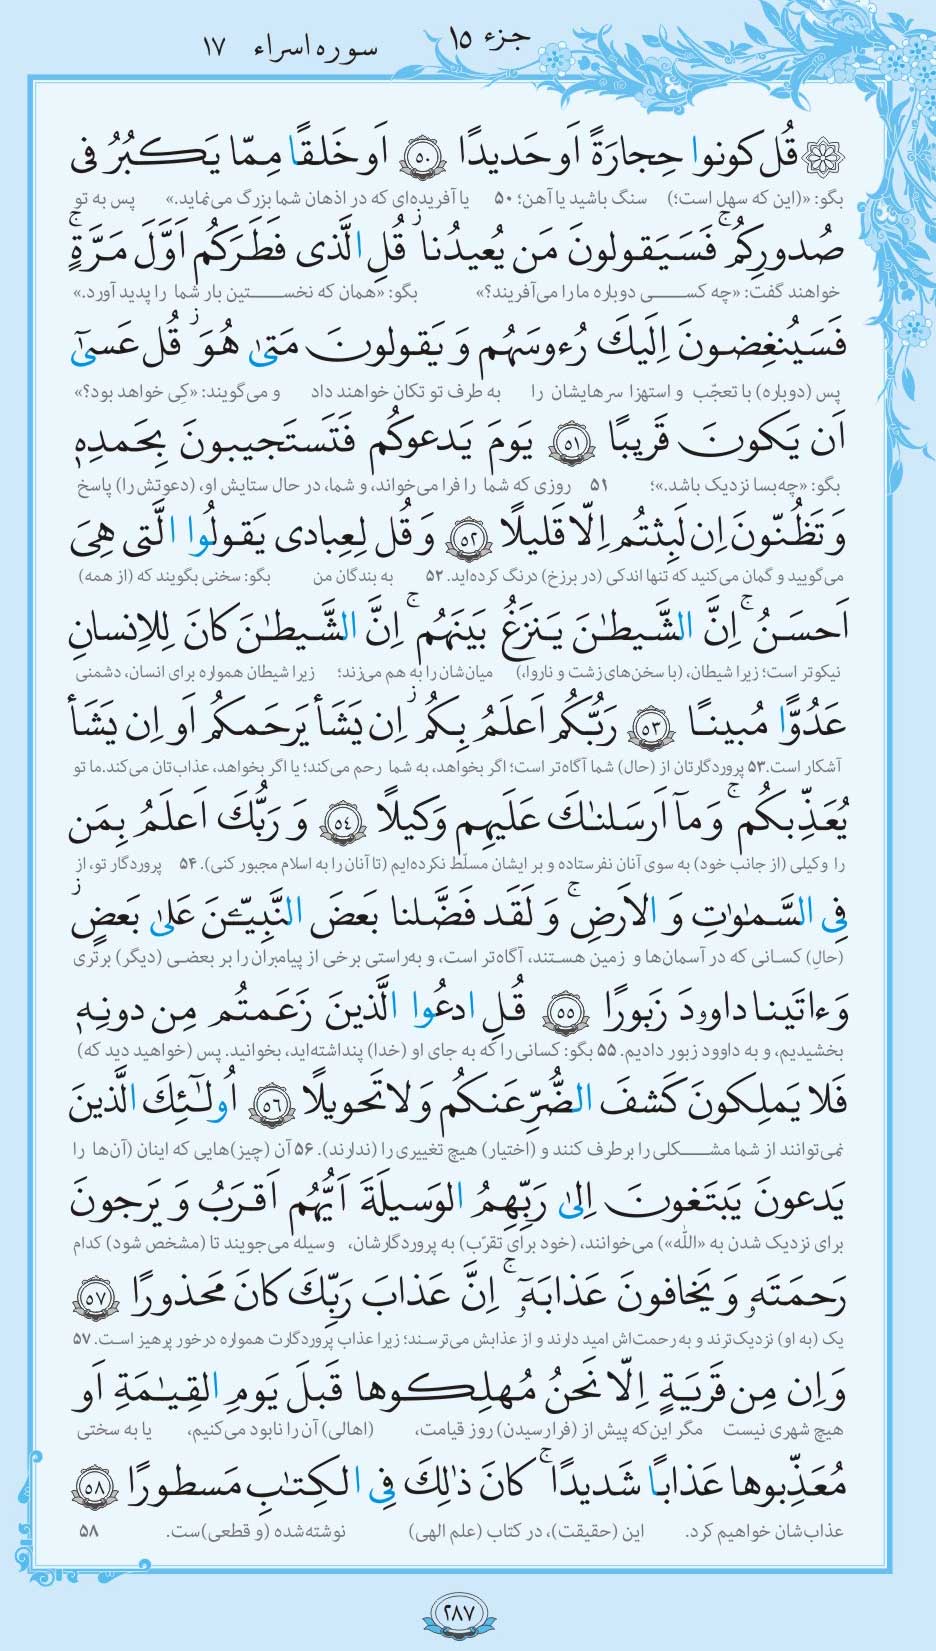 جزء ۱۵
سوره اسراء ۱۷
قُل كونوا حِجارَةً اَو حَديدًا ۵۰ اَو خَلقًا مِمّا يَـكـبُرُ فى
بگو: «(این که سهل است؛) سنگ باشید یا آهن؛ ۵۰ یا آفریده‌ای که در اذهان شما بزرگ می‌نماید.» پس به تو
صُدورِكُم ۚ فَسَيَقولونَ مَن يُعيدُنا ۖ قُلِ الَّذى فَطَرَكُم اَوَّلَ مَرَّةٍ ۚ
خواهند گفت: «چه کسی دوباره ما را می‌آفریند؟» بگو: «همان که نخستین بار شما را پدید آورد.»
فَسَيُنغِضونَ اِلَيكَ رُءوسَهُم وَ يَقولونَ مَتىٰ هُوَ ۖ قُل عَسىٰٓ
پس (دوباره) با تعجّب و استهزا سرهایشان را به طرف تو تکان خواهند داد و می‌گویند: «کِی خواهد بود؟»
اَن يَكونَ قَريبًا ۵۱ يَومَ يَدعوكُم فَتَستَجيبونَ بِحَمدِهٖ
بگو: «چه‌بسا نزدیک باشد.»؛ ۵۱ روزی که شما را فرا می‌خواند، و شما، در حال ستایش او، (دعوتش را) پاسخ
وَ تَظُنّونَ اِن لَبِثتُم اِلّا قَليلًا ۵۲ وَ قُل لِعِبادى يَقولُوا الَّتى هِىَ
می‌گویید و گمان می‌کنید که تنها اندکی (در برزخ) درنگ کرده‌اید. ۵۲ به بندگان من بگو: سخنی بگویند که (از همه)
اَحسَنُ ۚ اِنَّ الشَّيطٰنَ يَنزَغُ بَينَهُم ۚ اِنَّ الشَّيطٰنَ كانَ لِلاِنسانِ
نیکوتر است؛ زیرا شیطان، (با سخن‌های زشت و ناروا،) میان‌شان را به هم می‌زند؛ زیرا شیطان همواره برای انسان، دشمنی
عَدُوًّا مُبينًا ۵۳ رَبُّكُم اَعلَمُ بِكُم ۖ اِن يَشَأ يَرحَمكُم اَو اِن يَشَأ
آشکار است. ۵۳ پروردگارتان از (حال) شما آگاه‌تر است؛ اگر بخواهد، به شما رحم می‌کند؛ یا اگر بخواهد، عذاب‌تان می‌کند. ما تو
يُعَذِّبكُم ۚ وَ مآ اَرسَلنٰكَ عَلَيهِم وَكيلًا ۵۴ وَ رَبُّكَ اَعلَمُ بِمَن
را وکیلی (از جانب خود) به سوی آنان نفرستاده و بر ایشان مسلّط نکرده‌ایم (تا آنان را به اسلام مجبور کنی). ۵۴ پروردگار تو، از
فِى السَّمٰوٰتِ وَ الاَرضِ ۚ وَ لَقَد فَضَّلنا بَعضَ النَّبِيّـٖنَ عَلىٰ بَعضٍ ۖ
(حال) کسانی که در آسمان‌ها و زمین هستند، آگاه‌تر است، و به‌راستی برخی از پیامبران را بر بعضی (دیگر) برتری
وَ ءاتَينا داوۥدَ زَبورًا ۵۵ قُلِ ادعُوا الَّذينَ زَعَمتُم مِن دونِهٖ
بخشیدیم، و به داوود زبور دادیم. ۵۵ بگو: کسانی را که به جای او (خدا) پنداشته‌اید، بخوانید. پس (خواهید دید که)
فَلا يَملِكونَ كَشفَ الضُّرِّ عَنكُم وَ لا تَحويلًا ۵۶ اُولٰٓئِكَ الَّذينَ
نمی‌توانند از شما مشکلی را برطرف کنند و (اختیار) هیچ تغییری را (ندارند). ۵۶ آن (چیز)هایی که اینان (آن‌ها را
يَدعونَ يَبتَغونَ اِلىٰ رَبِّهِمُ الوَسيلَةَ اَيُّهُم اَقرَبُ وَ يَرجونَ
برای نزدیک شدن به «الله») می‌خوانند، (خود برای تقرّب) به پروردگارشان، وسیله می‌جویند تا (مشخص شود) کدام
رَحمَتَهٗ وَ يَخافونَ عَذابَهٗٓ ۚ اِنَّ عَذابَ رَبِّكَ كانَ مَحذورًا ۵۷
یک (به او) نزدیک‌ترند و به رحمت‌اش امید دارند و از عذابش می‌ترسند؛ زیرا عذاب پروردگارت همواره درخور پرهیز است. ۵۷
وَ اِن مِن قَريَةٍ اِلّا نَحنُ مُهلِكوها قَبلَ يَومِ القِيٰمَةِ اَو
هیچ شهری نیست مگر این‌که پیش از (فرارسیدن) روز قیامت، (اهالی) آن را نابود می‌کنیم، یا به سختی
مُعَذِّبوها عَذابًا شَديدًا ۚ كانَ ذٰلِكَ فِى الكِتٰبِ مَسطورًا ۵۸
عذاب‌شان خواهیم کرد. این (حقیقت)، در کتاب (علم الهی) نوشته‌شده (و قطعی)ست. ۵۸
۲۸۷